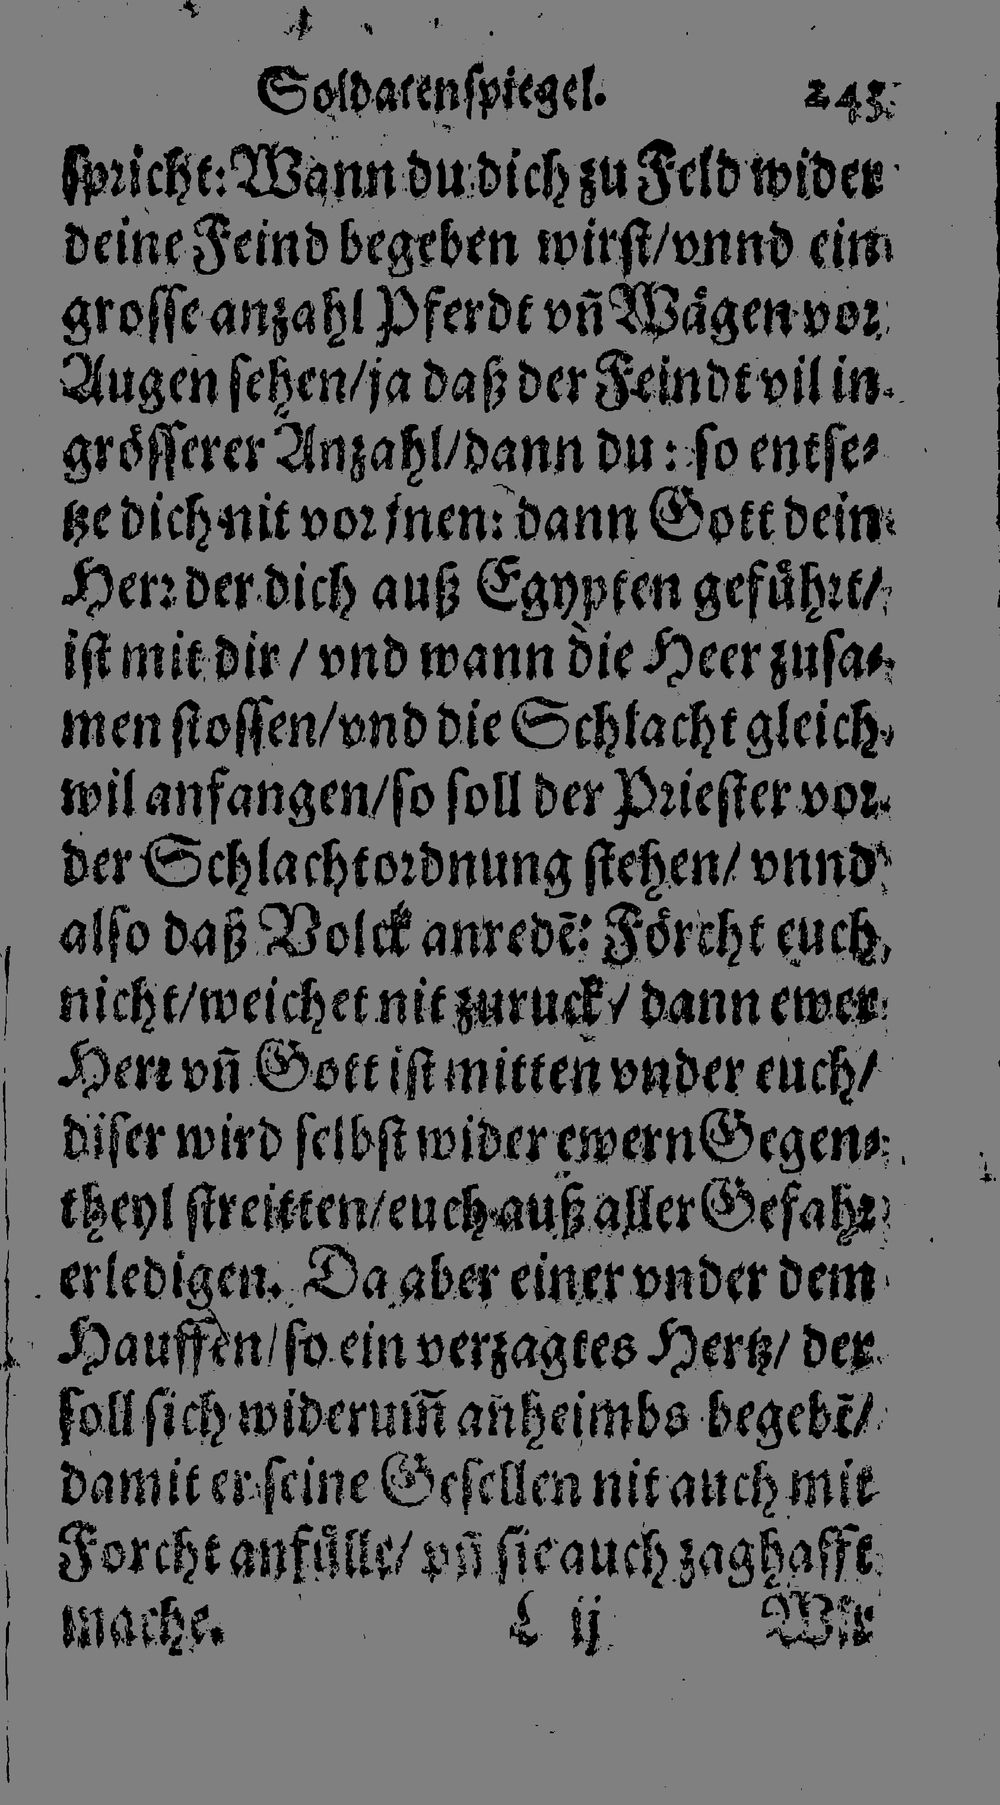 Soldatenspiegel. 243.
spricht: Wann du dich zu Feld wider
deine Feind begeben wirst/ vnnd ein
grosse anzahl Pferdt vñ Wägen vor
Augen sehen/ ja daß der Feindt vil in
grösserer Anzahl/ dann du: so entse-
tze dich nit vor jnen: dann Gott dein
Herr der dich auß Egypten geführt/
ist mit dir / vnd wann die Heer zusa-
men stossen/ vnd die Schlacht gleich
wil anfangen/ so soll der Priester vor
der Schlachtordnung stehen/ vnnd
also daß Volck anredẽ: Förcht euch
nicht/ weichet nit zuruck/ dann ewer
Herr vñ Gott ist mitten vnder euch/
diser wird selbst wider ewern Gegen-
theyl streitten/ euch auß aller Gefahr
erledigen. Da aber einer vnder dem
Hauffen/ so ein verzagtes Hertz/ der
soll sich widerum̃ anheimbs begebẽ/
damit er seine Gesellen nit auch mit
Forcht anfülle/ vñ sie auch zaghafft
mache. L ij Wir